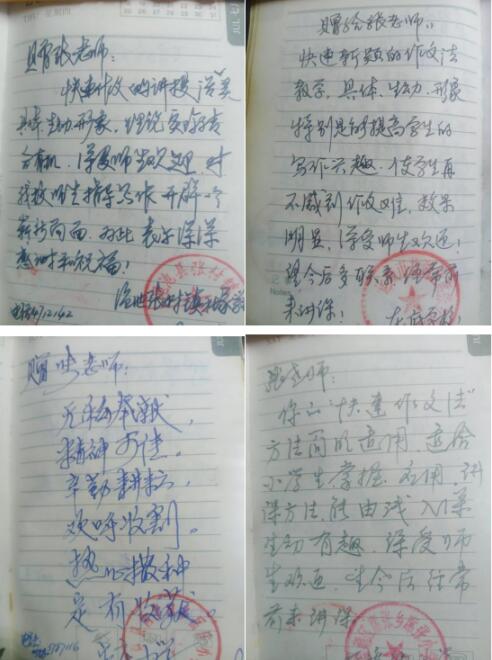 赠张老师:
快速作文的讲授浅显
具体生动形象,理论实际结
合有机,深受师生欢迎,对
我校师生指导写作开辟一个
崭新局面,对此表示深深
感谢和祝福!
赠给张老师:
快速新颖的作文法
教学,具体、生动、形象
特别是能提高学生的
写作兴趣,使学生再
不感到作文难,效果
明显,深受师生欢迎!
望今后多联系经常前
来讲课!
赠张老师:
无私奉献,
精神可佳。
辛勤耕耘,
欢呼收割。
热心播种
定有收获。
张老师:
你的“快速作文法”
方法简明适用,适合
小学生掌握、应用,讲
课方法,能由浅入深
生动有趣,深受师
生欢迎,望今后经常
前来讲课